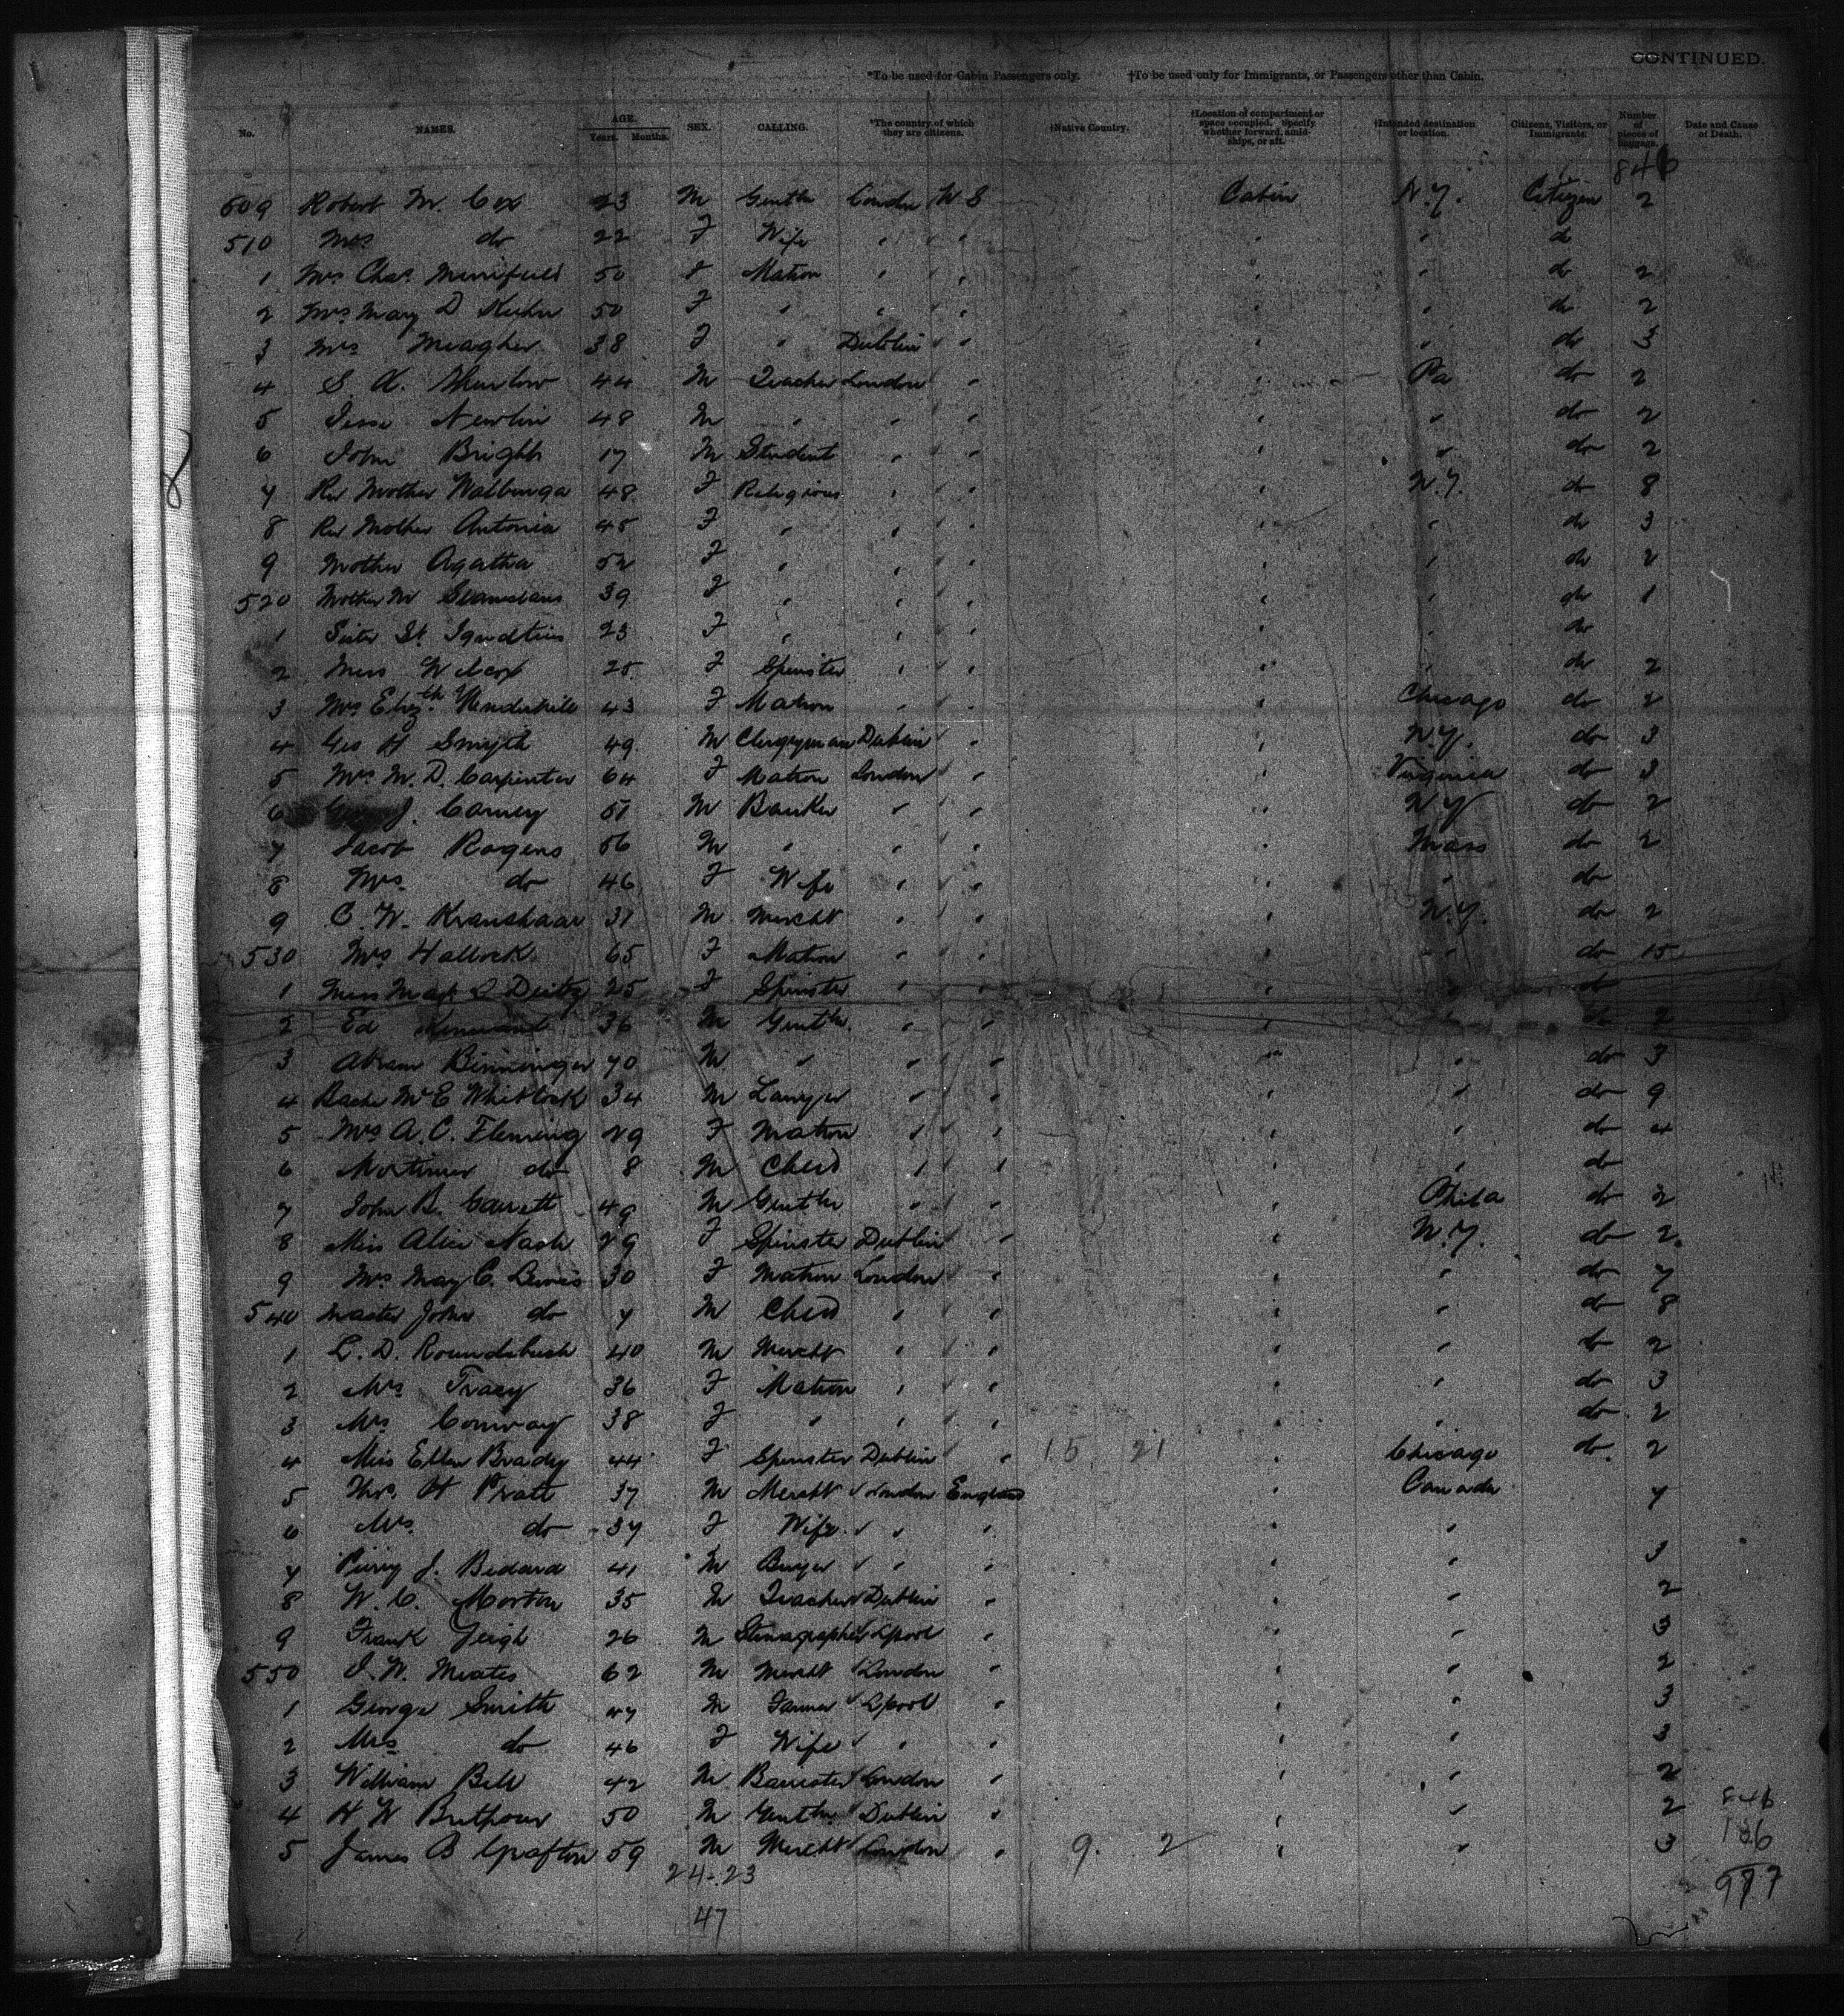 CONTINUED.
*To be used for Cabin Passengers only. †To be used only for Immigrants, or Passengers other than Cabin.
No. NAMES. AGE. Years. Months. SEX. CALLING. *The country of which they are citizens. †Native Country. †Location of compartment or space occupied. Specify whether forward, amidships, or aft. †Intended destination or location. Citizens, Visitors, or Immigrants. Number of pieces of baggage. Date and Cause of Death.
846
509 Robert M. Cox 23 M Gentln London U S Cabin N.Y. Citizen 2
510 Mrs do 22 F Wife " " " " " do
1 Mrs Chas. Merrifield 50 F Matron " " " " " do 2
2 Mrs Mary D Kuhn 50 F " " " " " " do 2
3 Mrs Meagher 38 F " Dublin " " " " do 3
4 S. 44 M Teacher London " " Pa do 2
5 Jesse Newlin 48 M " " " " " " do 2
6 John Bright 17 M Student " " " " " do 2
7 Rev Mother Walburga 48 F Religious " " " " N.Y. do 8
8 Rev Mother Antonia 45 F " " " " " " do 3
9 Mother Agatha 52 F " " " " " " do 2
520 Mother M Stanislaus 39 F " " " " " " do 1
1 Sister St. Ignatius 23 F " " " " " " do
2 Miss Wilcox 25 F Spinster " " " " " do 2
3 Mrs Elizth. 43 F Matron " " " " Chicago do 2
4 Geo H Smyth 49 M Clergyman Dublin " " " N.Y. do 3
5 Mrs M. D. Carpenter 64 F Matron London " " " Virginia do 3
6 J. Carney 51 M Banker " " " " N Y do 2
7 Jacob Rogers 56 M " " " " " Mass do 2
8 Mrs do 46 F Wife " " " " " do
9 C. W. Kraushaar 31 M Mercht " " " " N.Y. do 2
530 Mrs Hallock 65 F Matron " " " " " do 15
1 Miss Mary Deitz 25 F Spinster " " " " " do
2 Ed 36 M Gentln. " " " " " do 2
3 Abram Bininger 70 M " " " " " " do 3
4 Bache McE Whitlock 34 M Lawyer " " " " " do 9
5 Mrs A. C. Fleming 29 F Matron " " " " " do 4
6 Mortimer do 8 M Child " " " " " do
7 John B. Garrett 49 M Gentln " " " " Phila do 2
8 Miss Alice Nash 29 F Spinster Dublin " " " N.Y. do 2
9 Mrs May C. Lewis 30 F Matron London " " " " do 7
540 Master John do 7 M Child " " " " " do 8
1 L. D. Roundebush 40 M Mercht " " " " " do 2
2 Mrs Tracy 36 F Matron " " " " " do 3
3 Mrs Conway 38 F " " " " " " do 2
4 Miss Ellen Brady 44 F Spinster Dublin " " 15 21 " Chicago do. 2
5 Thos. H Pratt 37 M Mercht London England " Canada 7
6 Mrs. do 37 F Wife " " " " "
7 J. Bedard 41 M Buyer " " " " 3
8 W. C. Morton 35 M Teacher Dublin " " " 2
9 Frank Jeigh 26 M Stenographer Lpool " " " 3
550 J. W. Meates 62 M Mercht London " " " 2
1 George Smith 47 M Farmer Lpool " " " 3
2 Mrs do 46 F Wife " " " " 3
3 William Bell 42 M Barrister London " " " 2
4 H W 50 M Gentln. Dublin " " " 2
5 James B Grafton 59 M Mercht London " 9. 2 " " 3
846
24-23
47